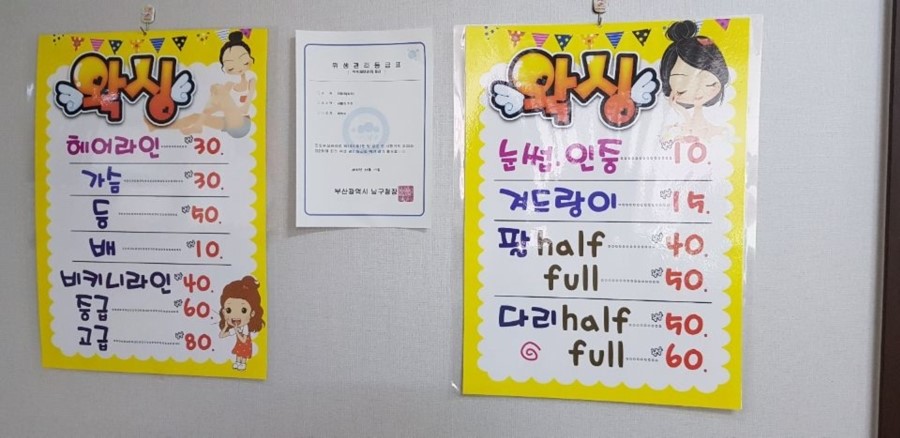 왁싱
헤어라인 ₩30.
가슴 ₩30.
등 ₩50.
배 ₩10.
비키니라인 ₩40.
중급 ₩60.
고급 ₩80.
위생관리등급표
부산광역시 남구청장
왁싱
눈썹.인중 ₩10.
겨드랑이 ₩15.
팔 half ₩40.
full ₩50.
다리 half ₩50.
full ₩60.